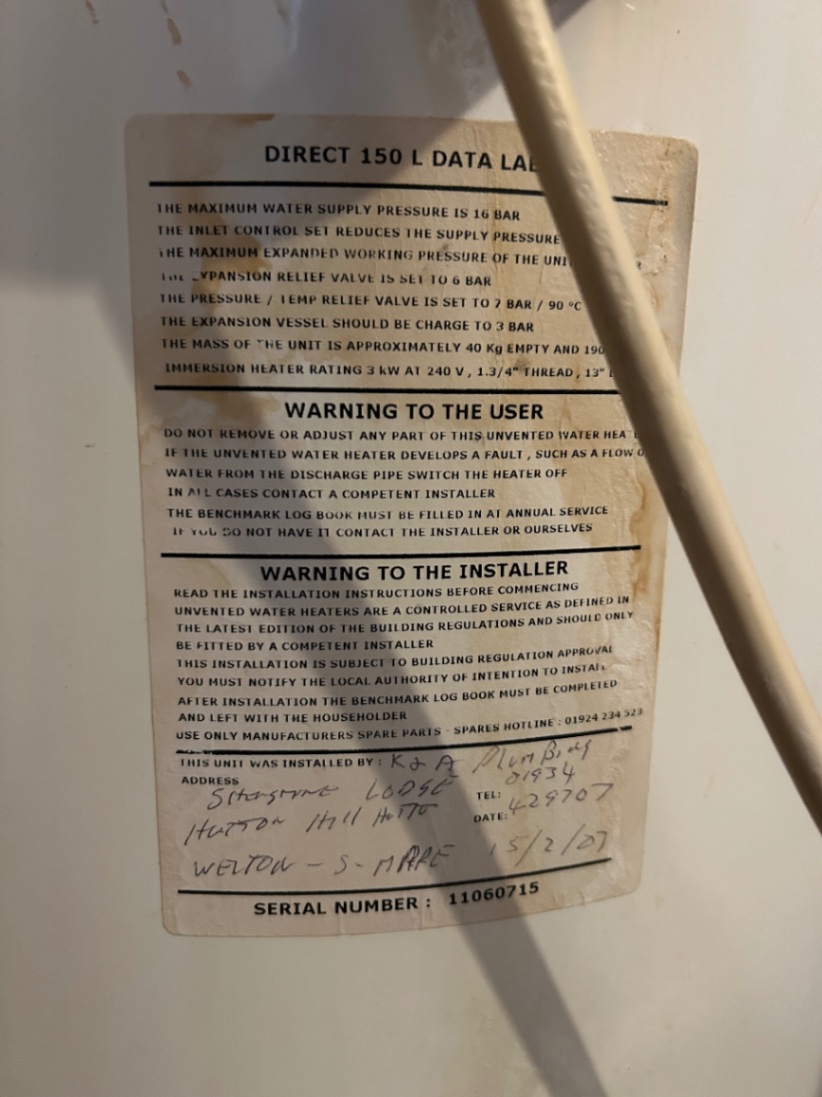 DIRECT 150 L DATA
THE MAXIMUM WATER SUPPLY PRESSURE IS 16 BAR
THE INLET CONTROL SET REDUCES THE SUPPLY PRESSURE
THE MAXIMUM EXPANDED WORKING PRESSURE OF THE
EXPANSION RELIEF VALVE IS SET TO 6 BAR
THE PRESSURE / TEMP RELIEF VALVE IS SET TO 7 BAR / 90 °C
THE EXPANSION VESSEL SHOULD BE CHARGE TO 3 BAR
THE MASS OF THE UNIT IS APPROXIMATELY 40 Kg EMPTY AND 190
IMMERSION HEATER RATING 3 kW AT 240 V , 1.3/4" THREAD , 13"
WARNING TO THE USER
DO NOT REMOVE OR ADJUST ANY PART OF THIS UNVENTED WATER
IF THE UNVENTED WATER HEATER DEVELOPS A FAULT , SUCH AS A FLOW
WATER FROM THE DISCHARGE PIPE SWITCH THE HEATER OFF
IN ALL CASES CONTACT A COMPETENT INSTALLER
THE BENCHMARK LOG BOOK MUST BE FILLED IN AT ANNUAL SERVICE
IF YOU DO NOT HAVE IT CONTACT THE INSTALLER OR OURSELVES
WARNING TO THE INSTALLER
READ THE INSTALLATION INSTRUCTIONS BEFORE COMMENCING
UNVENTED WATER HEATERS ARE A CONTROLLED SERVICE AS DEFINED IN
THE LATEST EDITION OF THE BUILDING REGULATIONS AND SHOULD ONLY
BE FITTED BY A COMPETENT INSTALLER
THIS INSTALLATION IS SUBJECT TO BUILDING REGULATION APPROVAL
YOU MUST NOTIFY THE LOCAL AUTHORITY OF INTENTION TO INSTALL
AFTER INSTALLATION THE BENCHMARK LOG BOOK MUST BE COMPLETED
AND LEFT WITH THE HOUSEHOLDER
USE ONLY MANUFACTURERS SPARE PARTS - SPARES HOTLINE : 01924 234 523
THIS UNIT WAS INSTALLED BY : K & A Plumbing
ADDRESS LODGE TEL: 01934 429707
HUTTON Hill
DATE: 15/2/07
WELTON - S - MARE
SERIAL NUMBER : 11060715